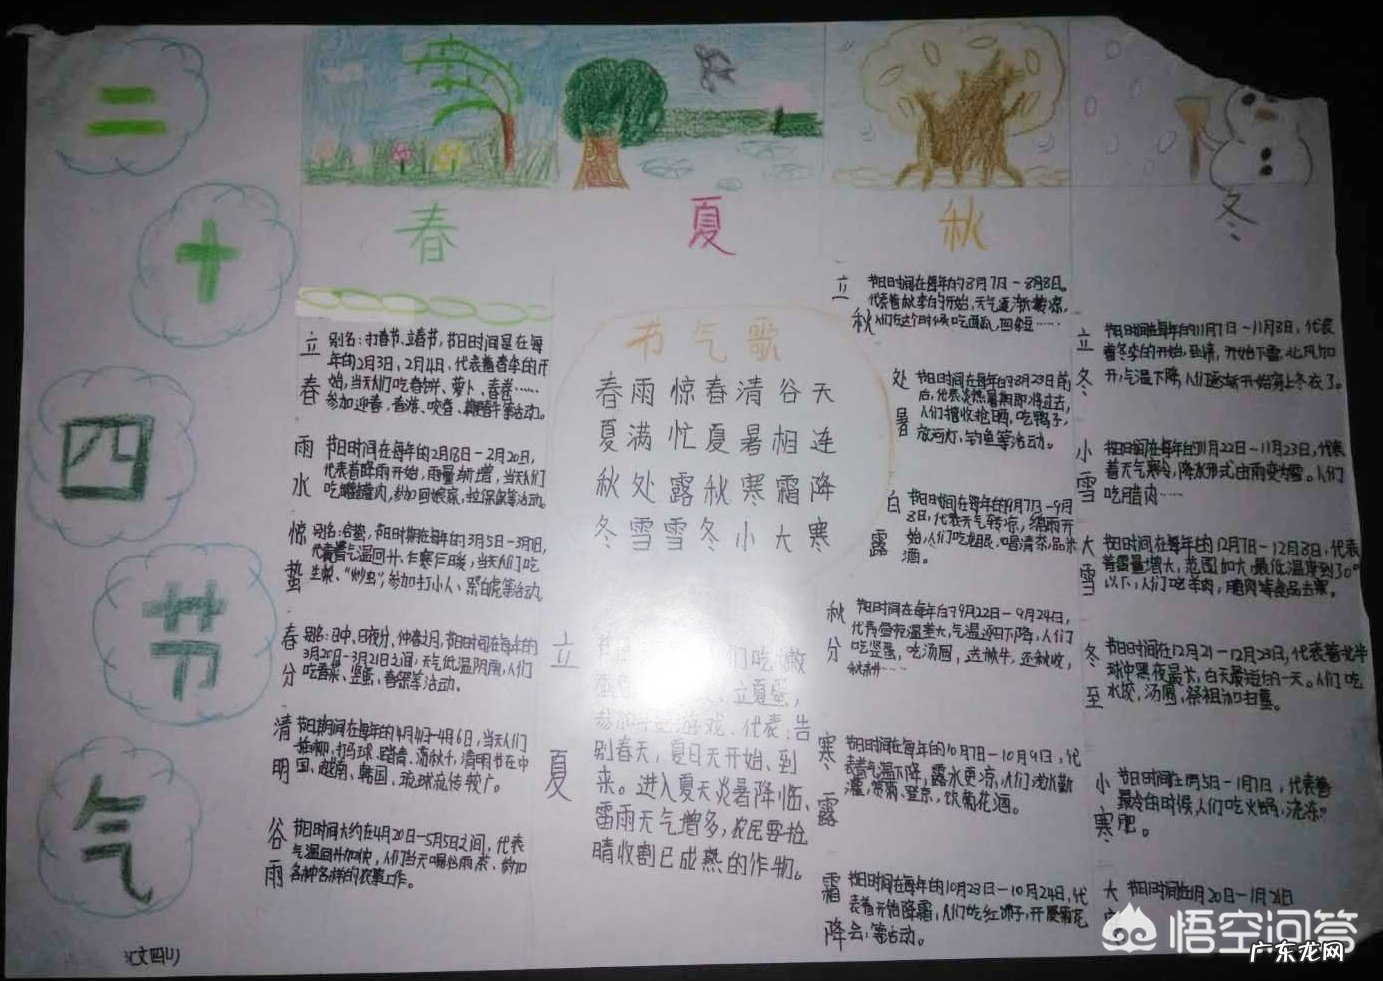 二
十
四
节
气
春
立春
别名：打春节、立春节，节日时间是在每
年的2月3日、2月4日，代表着春季的开
始，当天人们吃春饼、萝卜、春卷……
参加迎春、春游、咬春、鞭春牛等活动。
雨水
节日时间在每年的2月18日-2月20日，
代表着降雨开始，雨量渐增，当天人们
吃罐罐肉，参加回娘家、拉保保等活动。
惊蛰
别名：启蛰，节日时期在每年的3月5日-3月7日，
代表着气温回升、乍寒乍暖，当天人们吃
生菜、“炒虫”，参加打小人、祭白虎等活动。
春分
别名：日中、日夜分、仲春之月，节日时间在每年的
3月20日-3月21日之间，天气低温阴雨，人们
吃春菜、竖蛋、春祭等活动。
清明
节日期间在每年的4月4日-4月6日，当天人们
插柳，打马球、踏青、荡秋千，清明节在中
国、越南、韩国、琉球流传较广。
谷雨
节日时间大约在4月20日-5月5日之间，代表
气温回升加快，人们当天喝谷雨茶、参加
各种各样的农事工作。
夏
节气歌
春雨惊春清谷天
夏满忙夏暑相连
秋处露秋寒霜降
冬雪雪冬小大寒
立夏
们吃
立夏蛋，
参加 游戏、代表：告
别春天，夏日天开始、到
来。进入夏天炎暑降临、
雷雨天气增多，农民要抢
晴收割已成熟的作物。
秋
立秋
节日时间在每年的8月7日-8月8日。
代表着秋季的开始，天气逐渐转凉，
人们在这个时候吃西瓜，四季豆……
处暑
节日时间在每年的8月23日前
后，代表炎热暑期即将过去，
人们 吃鸭子，
放河灯，钓鱼等活动。
白露
节日时间在每年的9月7日-9月
8日，代表天气转凉，
始，人们吃龙眼，喝清茶，品米
酒。
秋分
节日时间在每年的9月22日-9月24日，
代表昼夜温差大，气温逐日下降，人们
吃竖蛋，吃汤圆，送秋牛，还秋收，
秋耕……
寒露
节日时间在每年的10月7日-10月9日，代
表着气温下降，露水更凉，人们浅水勤
灌，赏雨、登京，饮菊花酒。
霜降
节日时间在每年的10月23日-10月24日，代
表着开始降霜，人们吃红柿子，开展菊花
会；等活动。
冬
立冬
节日时间在每年的11月7日-11月8日，代表
着冬季的开始，到来，开始下雪，北风加
开，气温下降，人们逐渐开始穿上冬衣了。
小雪
节日时间在每年的11月22日-11月23日，代表
着天气寒冷，降水形式由雨变为雪。人们
吃腊肉……
大雪
节日时间在每年的12月7日-12月8日，代表
着雪量增大，范围加大，最低温度到30°
以下，人们吃羊肉，腊肉等食品去寒。
冬至
节日时间在12月21-12月23日，代表着北半
球中黑夜最长，白天最短的一天。人们吃
水饺，汤圆，祭祖加扫墓。
小寒
节日时间在1月5日-1月7日，代表着
最冷的时候人们吃火锅，浇冻
肥。
大
节日时间在1月20日-1月21日
悟空问答
广东龙网